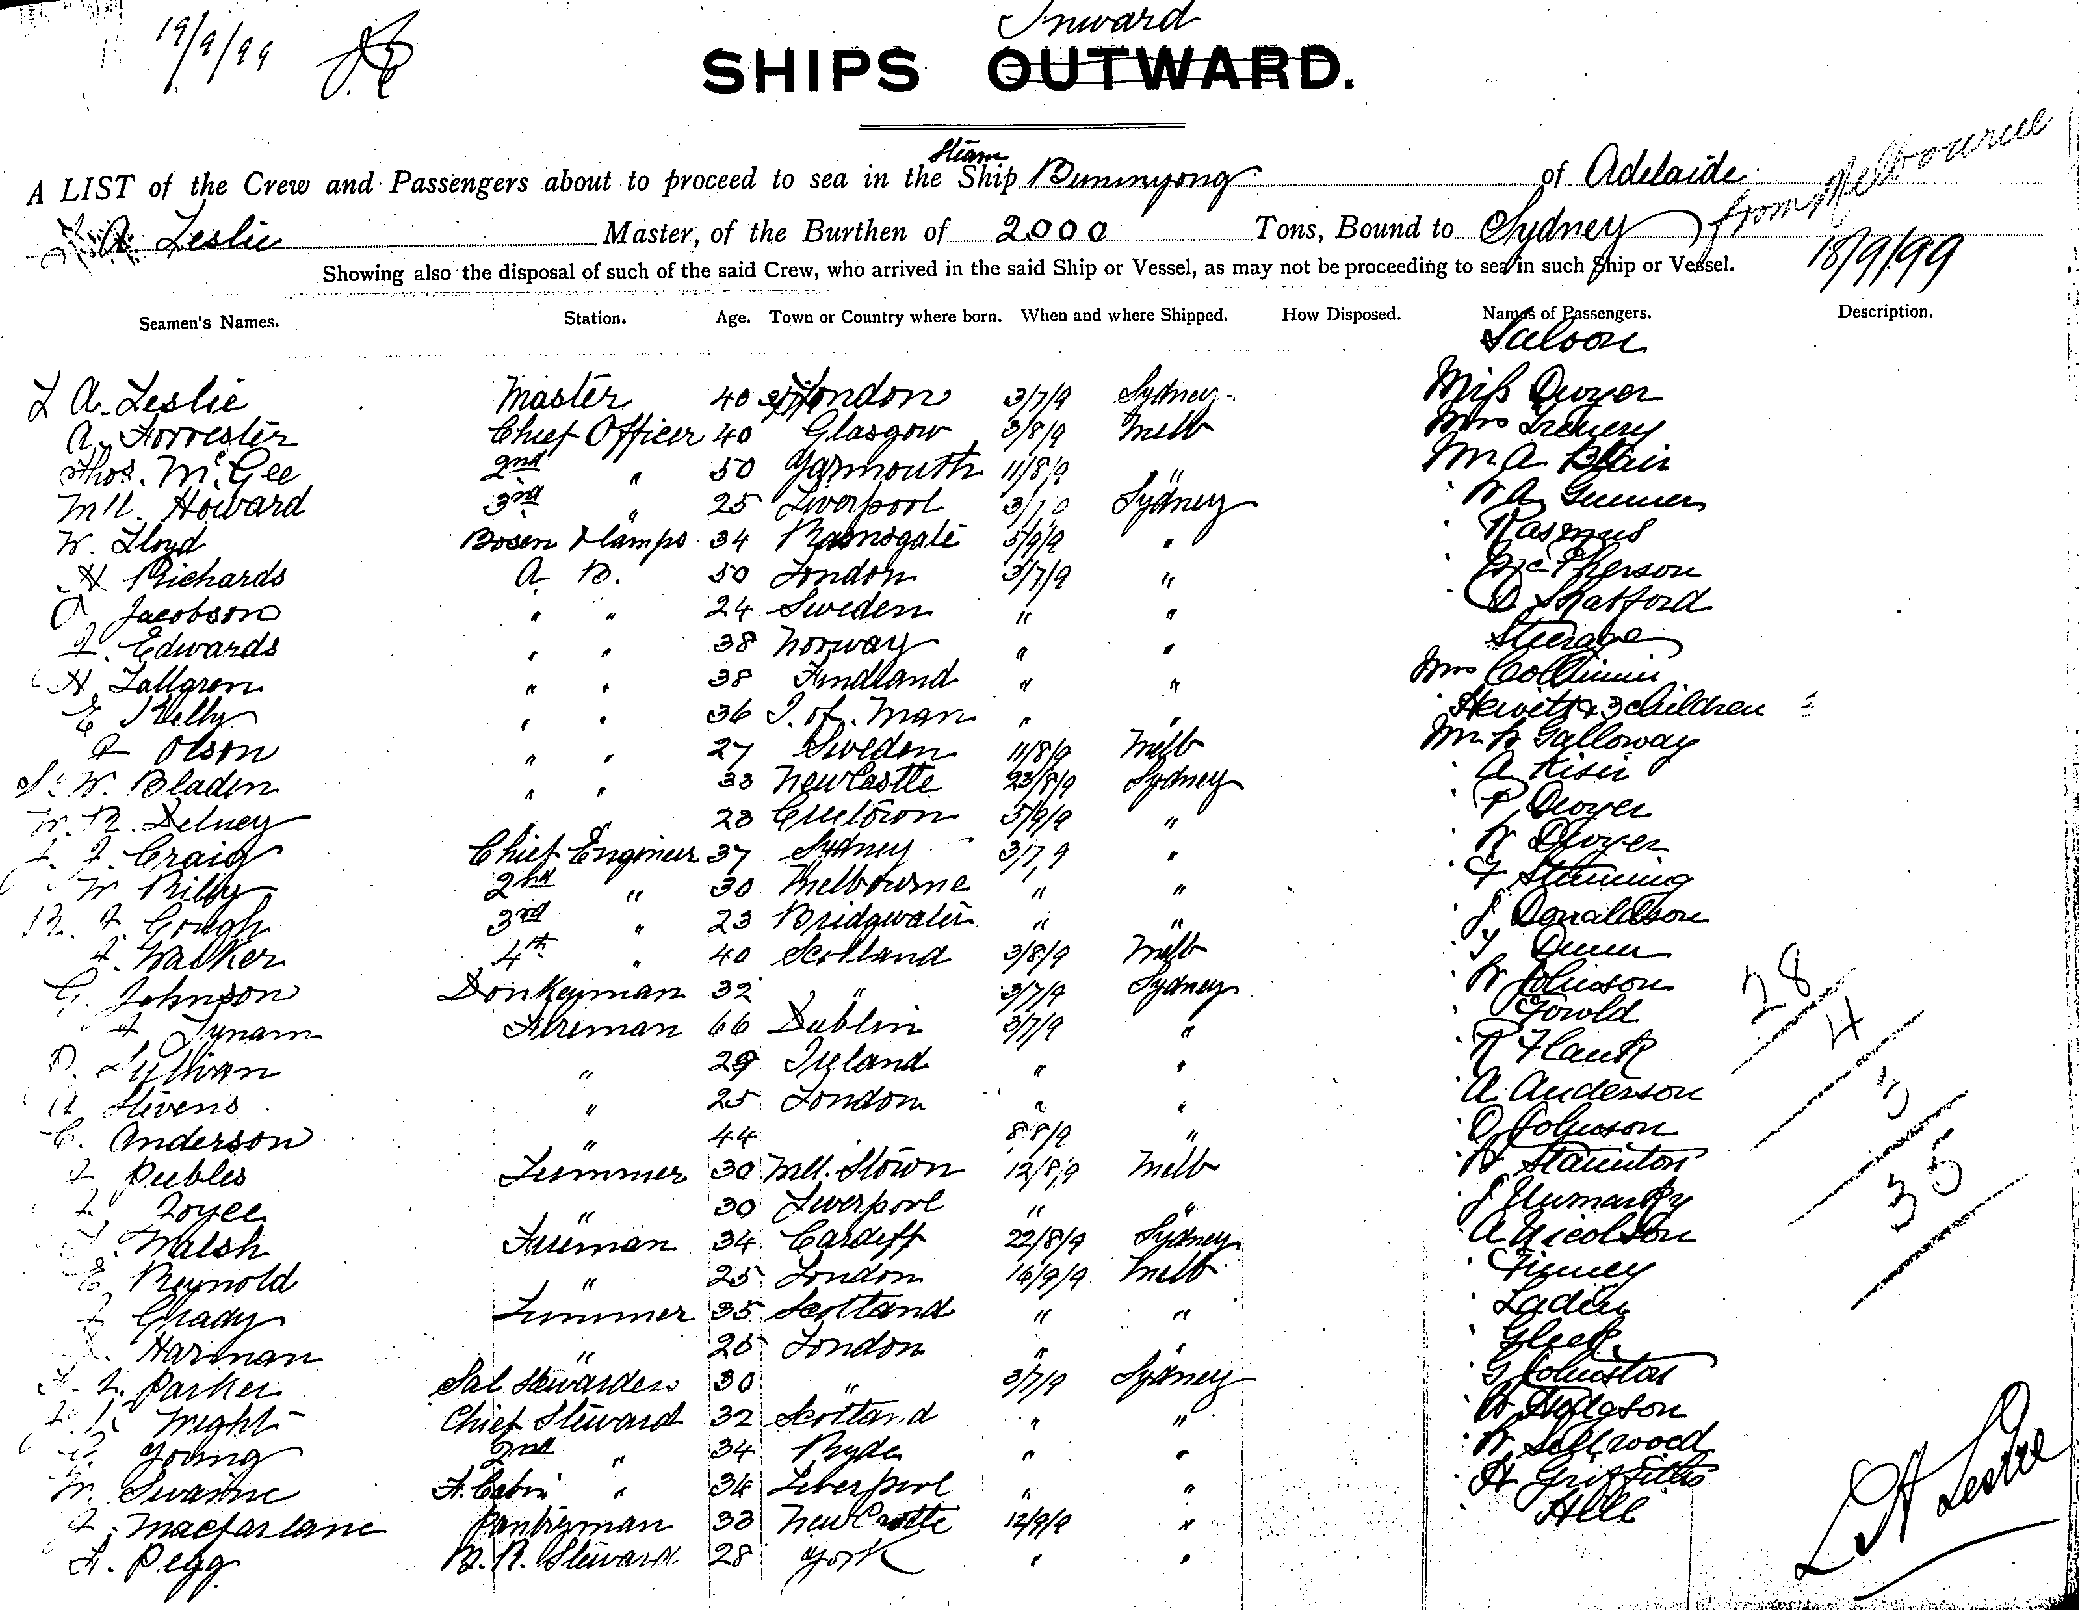 19/9/99
Inward
SHIPS OUTWARD.
A LIST of the Crew and Passengers about to proceed to sea in the Steam Ship Buninyong of Adelaide
L A Leslie Master, of the Burthen of 2000 Tons, Bound to Sydney from Melbourne
Showing also the disposal of such of the said Crew, who arrived in the said Ship or Vessel, as may not be proceeding to sea in such Ship or Vessel. 18/9/99
Seamen's Names. Station. Age. Town or Country where born. When and where Shipped. How Disposed. Names of Passengers. Description.
Saloon
L A. Leslie Master 40 London 3/7/9 Sydney Miss Dwyer
A. Forrester Chief Officer 40 Glasgow 3/8/9 Melb Mrs
Thos. McGee 2nd " 50 Yarmouth 11/8/9 " Mr A Blair
Howard 3rd " 25 Liverpool Sydney " W A Gunner
W. Lloyd Bosen & Lamps 34 Ramsgate 5/9/9 " " Rasmus
H Richards A. B. 50 London 3/7/9 " " McPherson
Jacobson " " 24 Sweden " " D Spatford
J. Edwards " " 38 Norway " " Steerage
H. Tallgren " " 38 Findland " " Mrs
E Kelly " " 36 I. of. Man " " " Hewitt & 3 children
J Olson " " 27 Sweden 11/8/9 Melb Mr W Galloway
W. Bladen " " 33 NewCastle 23/8/9 Sydney " A
W. R. Delney " " 23 5/9/9 " " P Dwyer
J. J. Craig Chief Engineer 37 Sydney 3/7/9 " " W Dwyer
W Riley 2nd " 30 Melbourne " " " F
R. J. Gough 3rd " 23 Bridgwater " " " J Donaldson
J. Walker 4th " 40 Scotland 3/8/9 Melb " T Dunn
G. Johnson Donkeyman 32 " 3/7/9 Sydney " W Johnson 28
J Tynam Fireman 66 Dublin 3/7/9 " " 4
D. Sullivan " 29 Ireland " " " R
A Stivens " 25 London " " A Anderson 3
C. Anderson " 44 8/8/9 " D Johnson
J Peebles Trimmer 30 Mel. Stown 12/8/9 Melb W Staunton 35
J Joyce " 30 Liverpool " " J
J. Walsh Fireman 34 Cardiff 22/8/9 Sydney A Nicolson
E Reynold " 25 London 16/9/9 Melb " Finney
J Grady Trimmer 35 Scotland " " "
Harman " 25 London " " "
Parker Sal Stewardess 30 " 3/7/9 Sydney " G Johnston
Wright Chief Steward 32 Scotland " " " W Hodgson
Young 2nd " 34 Ryde " " " W Sellwood
W. Swaine F. Cabin " 34 Liverpool " " " H Griffiths
J. Macfarlane Pantryman 33 NewCastle 12/9/9 " " Hill
H. Pegg M. R. Steward 28 York " "
L A Leslie